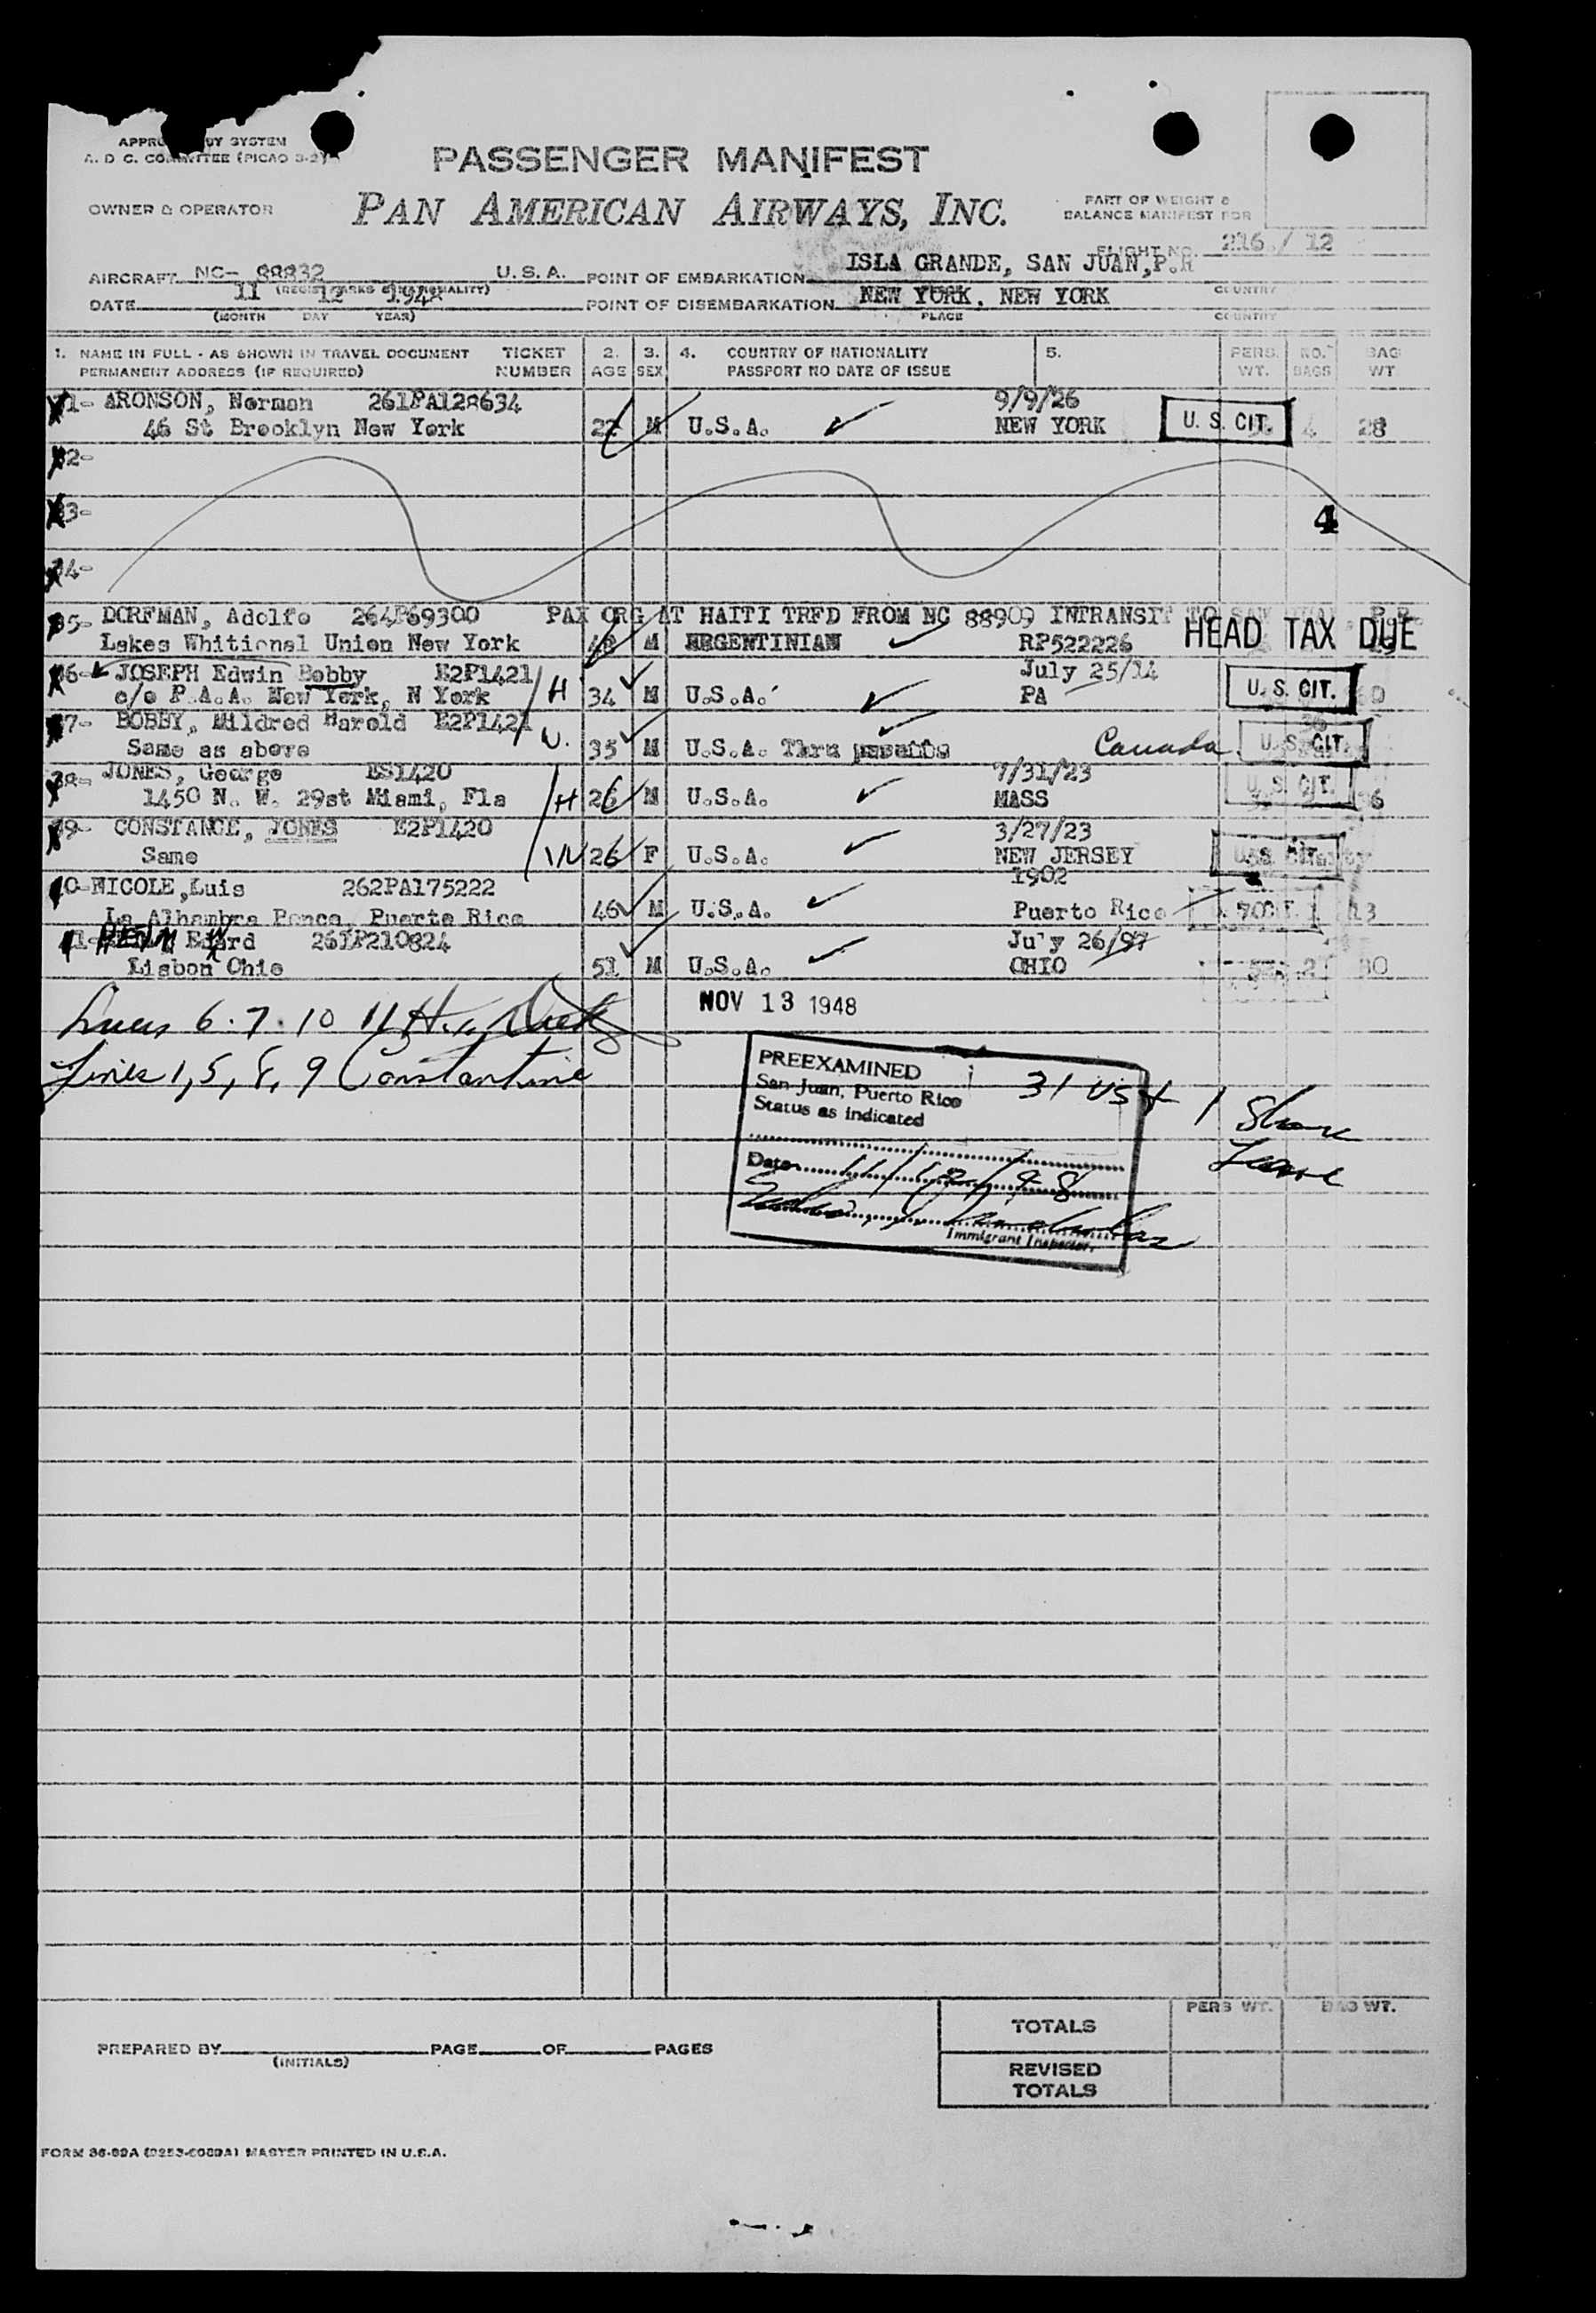 A. D C. COMMITTEE (PICAO 3-2)
PASSENGER MANIFEST
OWNER & OPERATOR
PAN AMERICAN AIRWAYS, INC.
PART OF WEIGHT &
BALANCE MANIFEST FOR
FLIGHT NO. 216 / 12
AIRCRAFT NC- 88832 U. S. A. POINT OF EMBARKATION ISLA GRANDE, SAN JUAN, P.R
DATE 11 12 1948 POINT OF DISEMBARKATION NEW YORK, NEW YORK
(MONTH DAY YEAR) PLACE COUNTRY
1. NAME IN FULL - AS SHOWN IN TRAVEL DOCUMENT TICKET 2. 3. 4. COUNTRY OF NATIONALITY 5. PERS. NO. BAG
PERMANENT ADDRESS (IF REQUIRED) NUMBER AGE SEX PASSPORT NO DATE OF ISSUE WT. BAGS WT
1- ARONSON, Norman 261PA128634 9/9/26
46 St Brooklyn New York 22 M U.S.A. NEW YORK U. S. CIT. 4 28
2-
3-
4
4-
5- DORFMAN, Adolfo 264P69300 PAX ORG AT HAITI TRFD FROM NC 88909 INTRANSIT TO
Lakes Whitional Union New York 48 M ARGENTINIAN RP522226 HEAD TAX DUE
6- JOSEPH Edwin Bobby E2P1421 July 25/14
c/o P.A.A. New York, N York H 34 M U.S.A. PA U. S. CIT.
7- BOBBY, Mildred Harold E2P1421
Same as above W. 35 M U.S.A. Thru parents Canada U. S. CIT.
8- JONES, George ES1420 7/31/23
1450 N. W. 29st Miami, Fla H 26 M U.S.A. MASS U. S. CIT.
9- CONSTANCE, JONES E2P1420 3/27/23
Same W 26 F U.S.A. NEW JERSEY U. S. CIT.
10- NICOLE, Luis 262PA175222 1902
La Alhambra Ponce, Puerto Rico 46 M U.S.A. Puerto Rico 13
Edard 261P210824 July 26/97
Lisbon Ohio 51 M U.S.A. OHIO 2 30
NOV 13 1948
Lines 6.7.10 11
Lines 1, 5, 8, 9 Constantine
PREEXAMINED
San Juan, Puerto Rico
Status as indicated
31 US + 1 Shore
Leave
Date 11/12/48
Immigrant Inspector.
TOTALS PERS WT. BAG WT.
PREPARED BY PAGE OF PAGES
(INITIALS)
REVISED
TOTALS
FORM 36-99A MASTER PRINTED IN U.S.A.